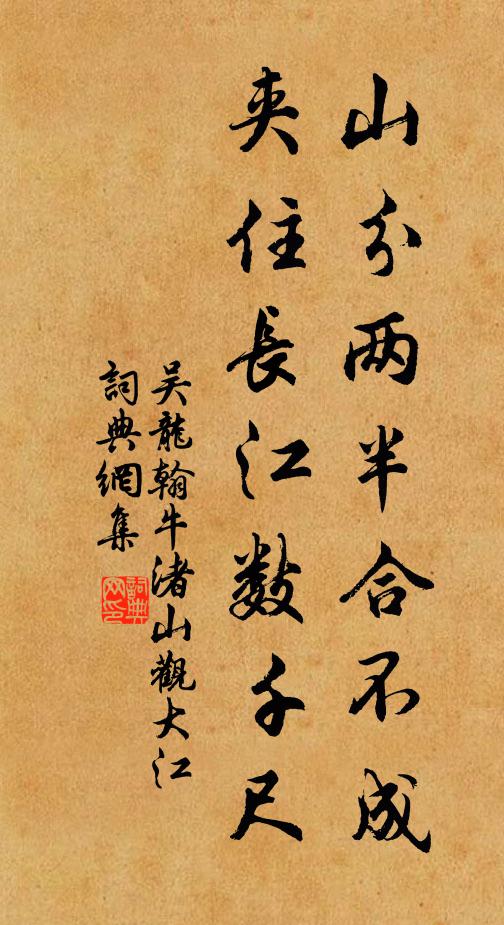 山分两半合不成
夹住長江数千尺
吴龍翰牛渚山觀大江
詞典網集
詞典
网印